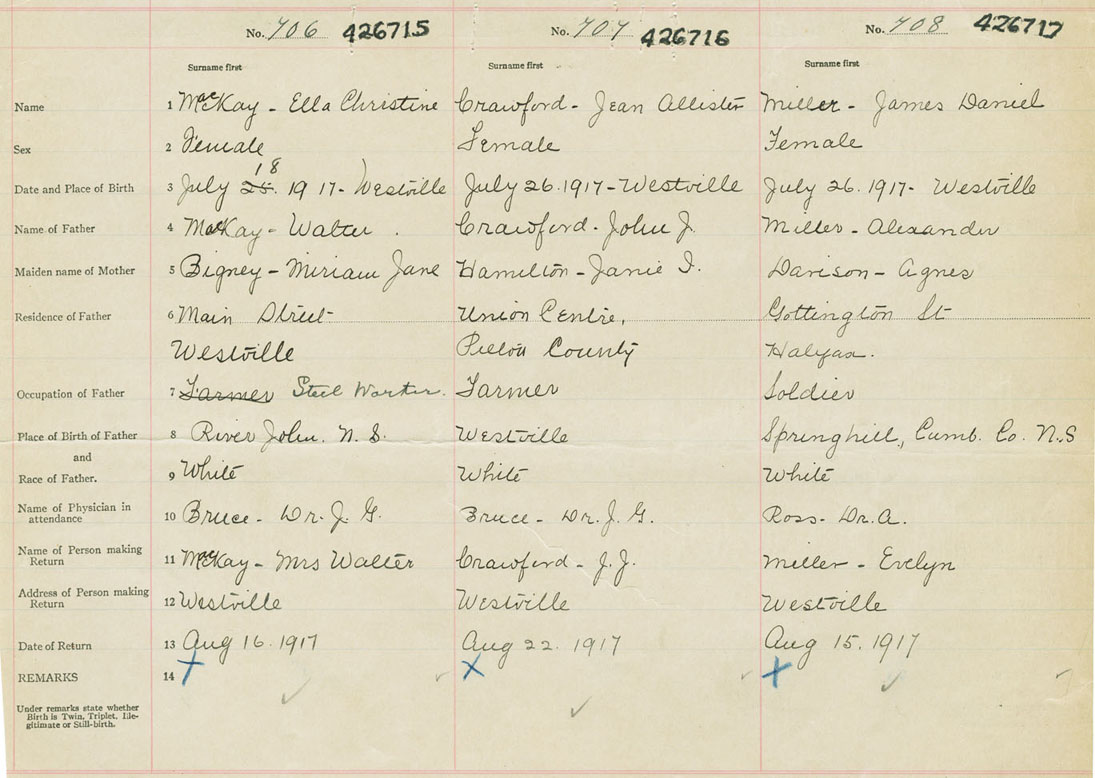 No. 706 426715 No. 707 426716 No. 708 426717
Surname first Surname first Surname first
Name 1 MacKay - Ella Christine Crawford - Jean Allister Miller - James Daniel
Sex 2 Female Female Female
18
Date and Place of Birth 3 July 28. 1917 - Westville July 26. 1917 - Westville July 26. 1917 - Westville
Name of Father 4 MacKay - Walter. Crawford - John J. Miller - Alexander
Maiden name of Mother 5 Bigney - Miriam Jane Hamilton - Janie I. Davison - Agnes
Residence of Father 6 Main Street Union Centre, Gottington St
Westville Pictou County Halifax.
Occupation of Father 7 Farmer Steel Worker. Farmer Soldier
Place of Birth of Father 8 River John. N.S. Westville Springhill, Cumb. Co. N.S
and
Race of Father. 9 White White White
Name of Physician in
attendance 10 Bruce - Dr. J. G. Bruce - Dr. J. G. Ross - Dr. A.
Name of Person making
Return 11 MacKay - Mrs Walter Crawford - J. J. Miller - Evelyn
Address of Person making
Return 12 Westville Westville Westville
Date of Return 13 Aug 16. 1917 Aug 22. 1917 Aug 15. 1917
REMARKS 14
Under remarks state whether
Birth is Twin, Triplet, Ille-
gitimate or Still-birth.